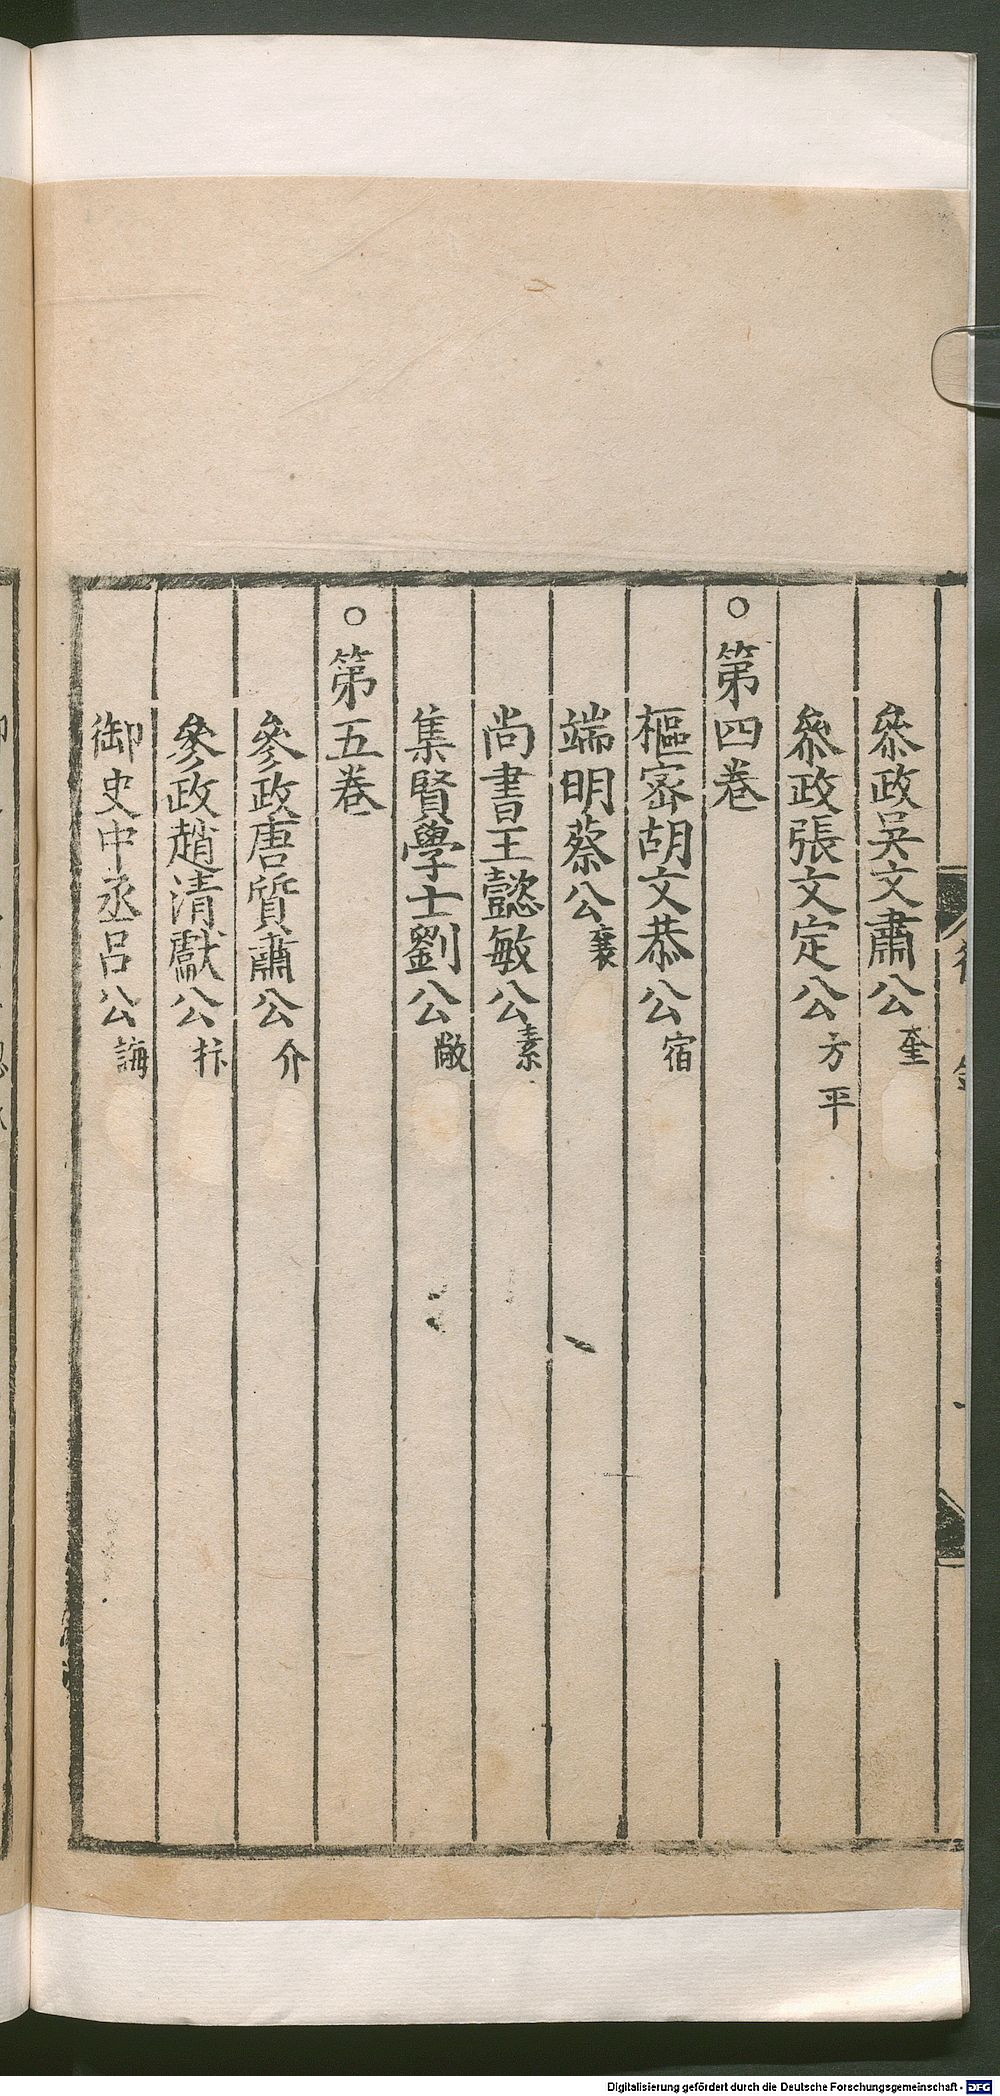 參政吳文肅公奎
參政張文定公方平
○第四巻
樞密胡文恭公宿
端明蔡公襄
尚書王懿敏公素
集賢學士劉公敞
○第五巻
參政唐質肅公介
參政趙清獻公抃
御史中丞呂公誨
Digitalisierung gefördert durch die Deutsche Forschungsgemeinschaft - DFG